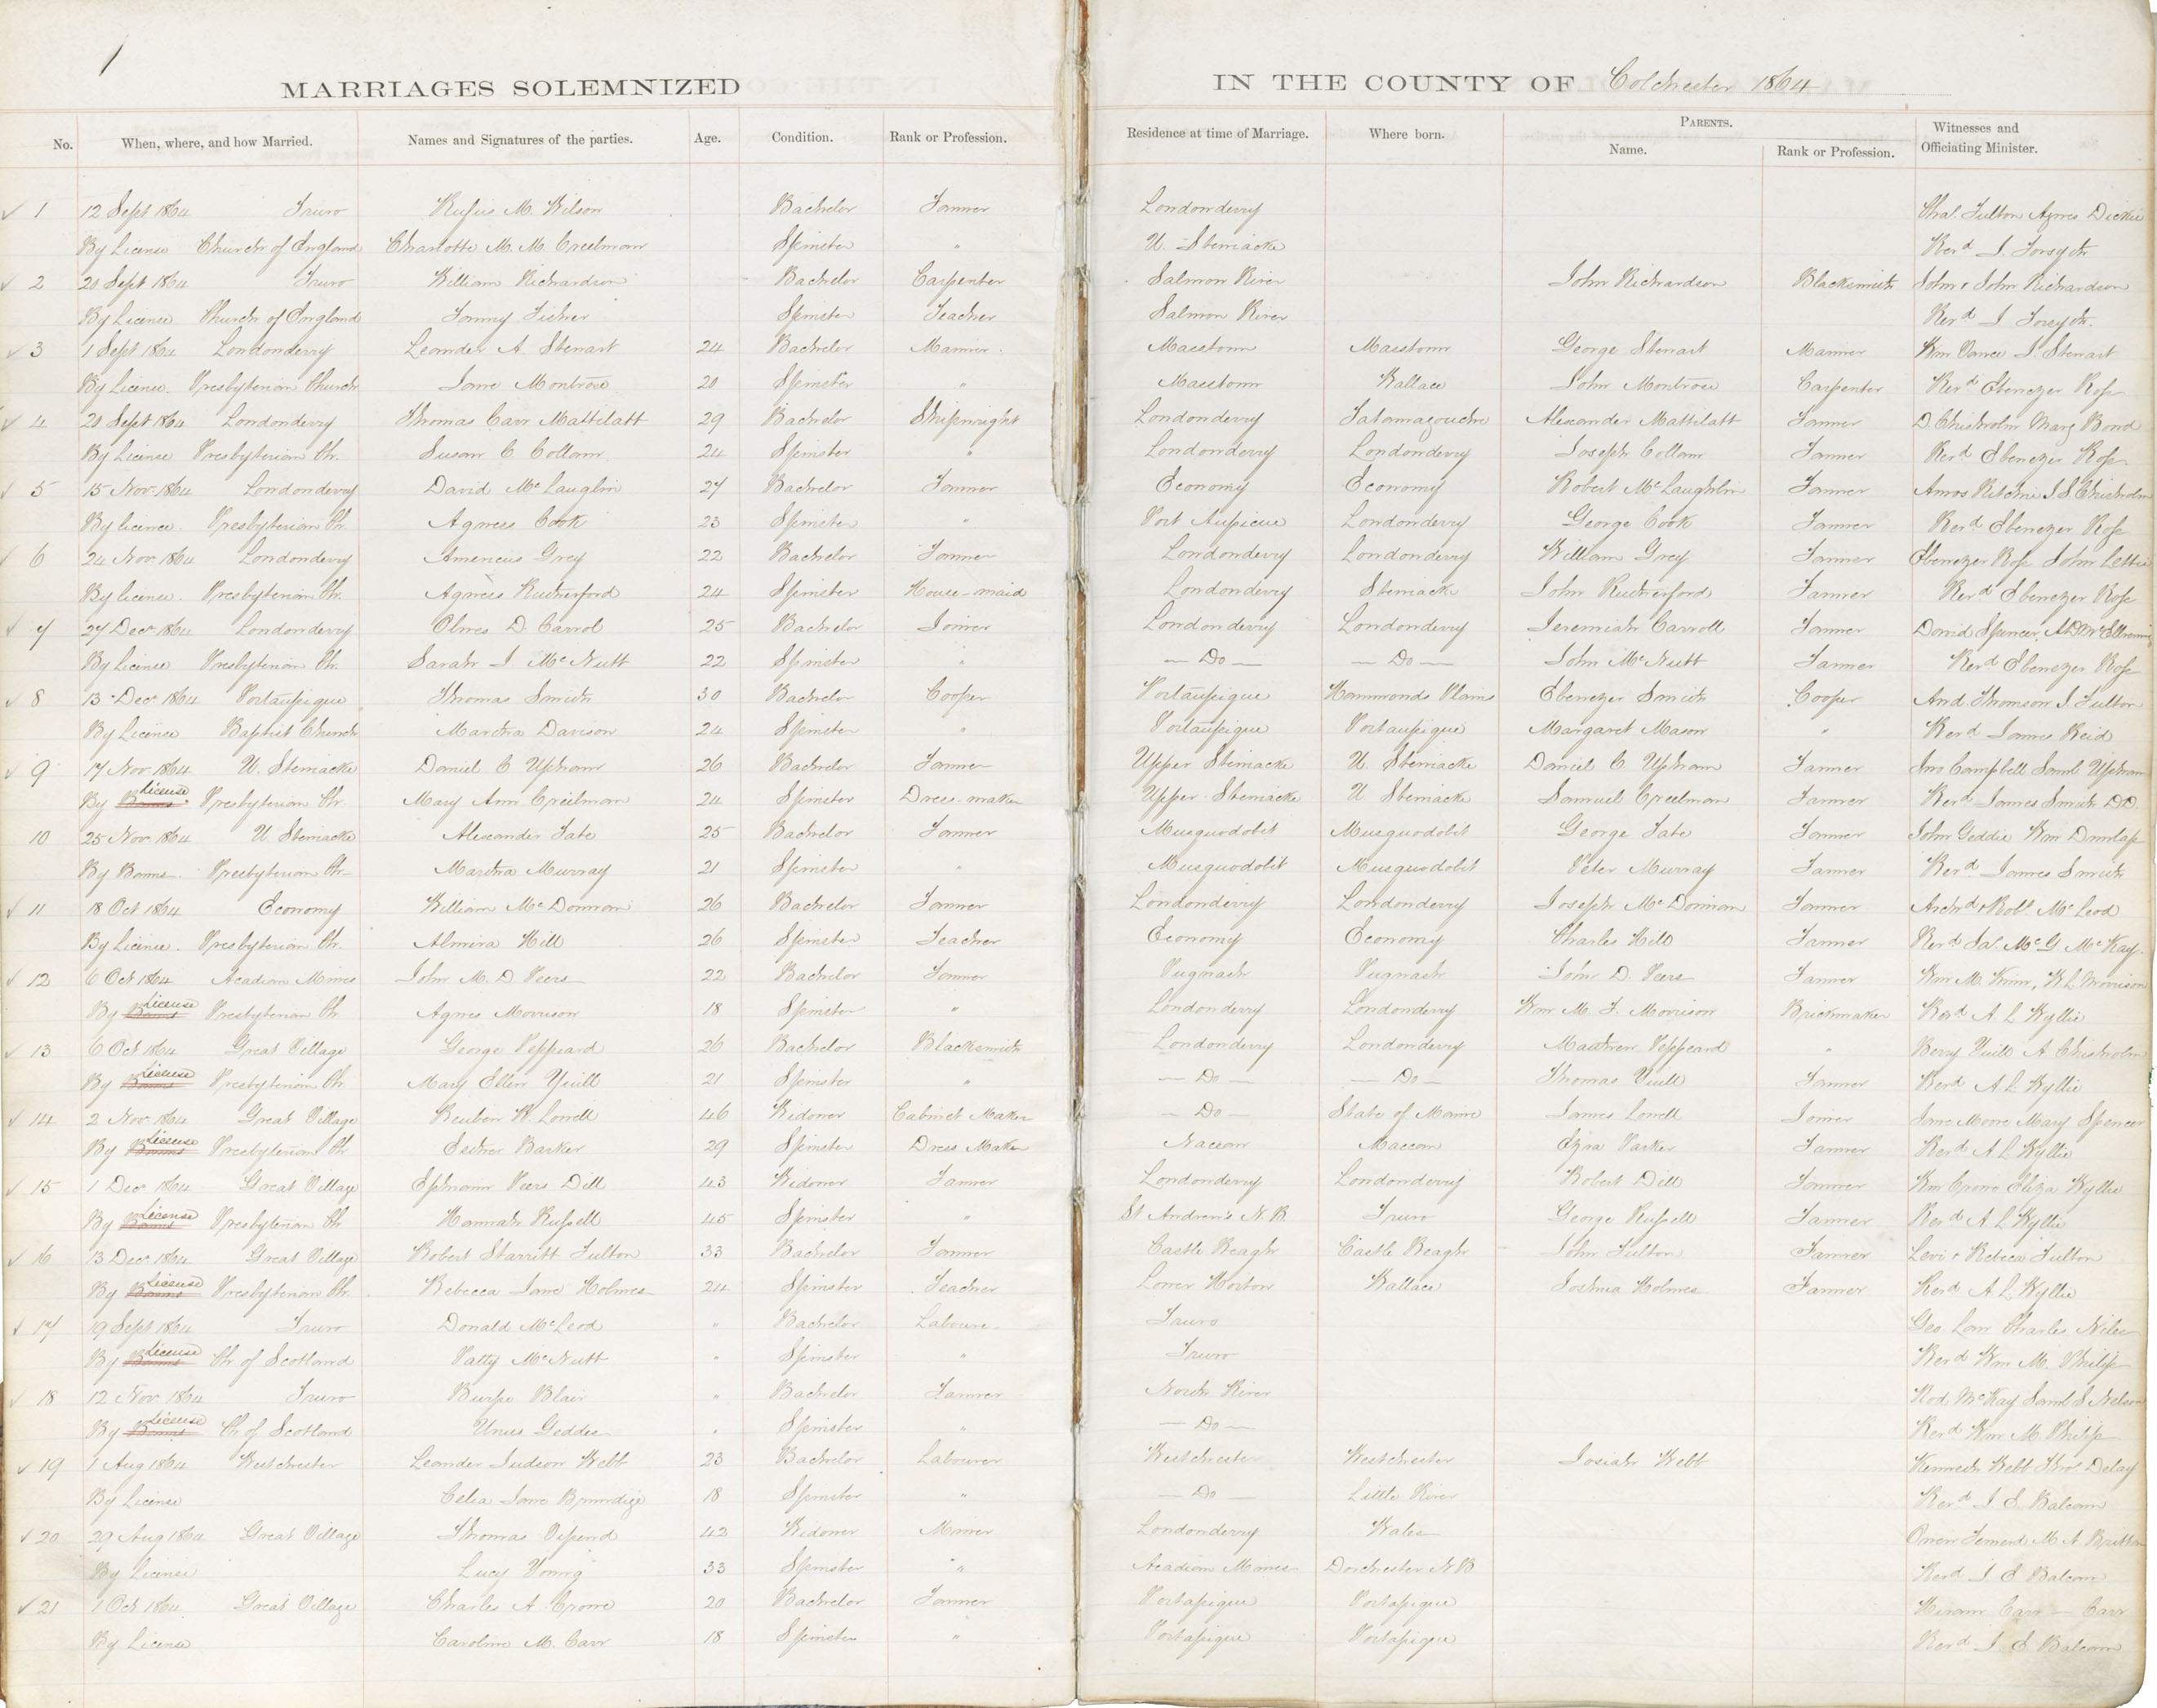 1
MARRIAGES SOLEMNIZED IN THE COUNTY OF Colchester 1864
No. When, where, and how Married. Names and Signatures of the parties. Age. Condition. Rank or Profession. Residence at time of Marriage. Where born. PARENTS. Name. Rank or Profession. Witnesses and Officiating Minister.
✓ 1 12 Sept 1864 Truro Rufus M. Wilson Bachelor Farmer Londonderry Chas. Fulton Agnes Dickie
By License Church of England Charlotte M. M. Creelman Spinster " U. Stewiacke Revd J. Forsyth
✓ 2 20 Sept 1864 Truro William Richardson Bachelor Carpenter Salmon River John Richardson Blacksmith John & John Richardson
By License Church of England Fanny Fisher Spinster Teacher Salmon River Revd J Forsyth.
✓ 3 1 Sept 1864 Londonderry Leander A. Stewart 24 Bachelor Mariner. Masstown Masstown George Stewart Mariner Wm Vance J. Stewart
By License. Presbyterian Church Jane Montrose 20 Spinster " Masstown Wallace John Montrose Carpenter Revd Ebenezer Ross
✓ 4 20 Sept 1864 Londonderry Thomas Carr Mattilatt 29 Bachelor Shipwright Londonderry Tatamagouche Alexander Mattilatt Farmer D. Chisholm Marg Bond
By License Presbyterian Ch. Susan C Collam 24 Spinster " Londonderry Londonderry Joseph Collam Farmer Revd Ebenezer Ross
✓ 5 15 Nov 1864 Londonderry David McLauglin 27 Bachelor Farmer Economy Economy Robert McLaughlin Farmer Amos Ritchie J. S. Chisholm
By licence. Presbyterian Ch. Agness Cook 23 Spinster " Port Aupicue Londonderry George Cook Farmer Revd Ebenezer Ross
✓ 6 24 Nov 1864 Londonderry Americus Grey 22 Bachelor Farmer Londonderry Londonderry William Grey Farmer Ebenezer Ross John
By license. Presbyterian Ch. Agness Rutherford 24 Spinster House-maid Londonderry Stewiacke John Rutherford Farmer Revd Ebenezer Ross
✓ 7 27 Decr 1864 Londonderry Olives D. Carrol 25 Bachelor Joiner Londonderry Londonderry Jeremiah Carroll Farmer David Spencer,
By License Presbyterian Ch. Sarah J McNutt 22 Spinster " — Do — — Do — John McNutt Farmer Revd Ebenezer Ross
✓ 8 13 Decr 1864 Portaupique Thomas Smith 30 Bachelor Cooper Portaupique Hammonds Plains Ebenezer Smith Cooper And. Thomson J. Fulton
By License Baptist Church Martha Davison 24 Spinster " Portaupique Portaupique Margaret Mason " Revd James Reid
✓ 9 17 Nov 1864 U. Stewiacke Daniel C Upham 26 Bachelor Farmer Upper Stewiacke U. Stewiacke Daniel C Upham Farmer Jno Campbell Saml Upham
By Banns License Presbyterian Ch. Mary Ann Creelman 24 Spinster Dress-maker Upper Stewiacke U Stewiacke Samuel Creelman Farmer Revd James Smith DD.
10 25 Nov 1864 U. Stewiacke Alexander Tate 25 Bachelor Farmer Musquodobit Musquodobit George Tate Farmer John Geddie Wm Dunlap
By Banns. Presbyterian Ch. Martha Murray 21 Spinster " Musquodobit Musquodobit Peter Murray Farmer Revd James Smith
✓ 11 18 Oct 1864 Economy William McDorman 26 Bachelor Farmer Londonderry Londonderry Joseph McDorman Farmer Archd & Robt. McLeod
By License. Presbyterian Ch. Almira Hill 26 Spinster Teacher Economy Economy Charles Hill Farmer Revd Jas. McG. McKay.
✓ 12 6 Oct 1864 Acadian Mines John M. D. Peers 22 Bachelor Farmer Pugwash Pugwash John D. Peers Farmer Wm M. R. L. Morrison
By Banns License Presbyterian Ch. Agnes Morrison 18 Spinster " Londonderry Londonderry Wm M. F. Morrison Brickmaker Revd A. L Wyllie
✓ 13 6 Oct 1864 Great Village George Peppeard 26 Bachelor Blacksmith Londonderry Londonderry Mathew Peppeard " Berry Yuill A Chisholm
By Banns License Presbyterian Ch Mary Ellen Yuill 21 Spinster " — Do — — Do — Thomas Yuill Farmer Revd A L Wyllie
✓ 14 2 Nov 1864 Great Village Reuben W. Lowell 46 Widower Cabinet Maker — Do — State of Maine James Lowell Joiner Jane Moore Mary Spencer
By Banns License Presbyterian Ch Esther Barker 29 Spinster Dress Maker Naccan Maccan Ezra Parker Farmer Revd A L Wyllie
✓ 15 1 Decr 1864 Great Village Ephraim Peers Dill 43 Widower Farmer Londonderry Londonderry Robert Dill Farmer Wm Crowe Eliza Wyllie
By Banns License Presbyterian Ch Hannah Russell 45 Spinster " St Andrew's N.B. Truro George Russell Farmer Revd A L Wyllie
✓ 16 13 Decr 1864 Great Village Robert Starritt Fulton 33 Bachelor Farmer Castle Reagh Castle Reagh John Fulton Farmer Levi & Rebeca Fulton
By Banns License Presbyterian Ch. Rebecca Jane Holmes 24 Spinster Teacher Lower Horton Wallace Joshua Holmes Farmer Revd A L Wyllie
✓ 17 19 Sept 1864 Truro Donald McLeod " Bachelor Labourer Truro Geo Law Charles Niles
By Banns License Ch. of Scotland Patty McNutt " Spinster " Truro Revd Wm M. Philip
✓ 18 12 Nov 1864 Truro Burpe Blair " Bachelor Farmer North River Rod. McKay Saml S Nelson
By Banns License Ch of Scotland Unus Geddes " Spinster " — Do — Revd Wm M. Philip
✓ 19 1 Aug 1864 Westchester Leander Judson Webb 23 Bachelor Labourer Westchester Westchester Josiah Webb Kenneth Webb Thos Delay
By License Celia Jane Brundige 18 Spinster " — Do — Little River Revd J E Balcom
✓ 20 29 Aug 1864 Great Village Thomas 42 Widower Miner Londonderry Wales Owen M. A Britton
By License Lucy Young 33 Spinster " Acadian Mines Dorchester N.B. Revd J E Balcom
✓ 21 1 Oct 1864 Great Village Charles A. Crowe 20 Bachelor Farmer Portapique Portapique Hiram Carr — Carr
By License Caroline M. Carr 18 Spinster " Portapique Portapique Revd J E Balcom